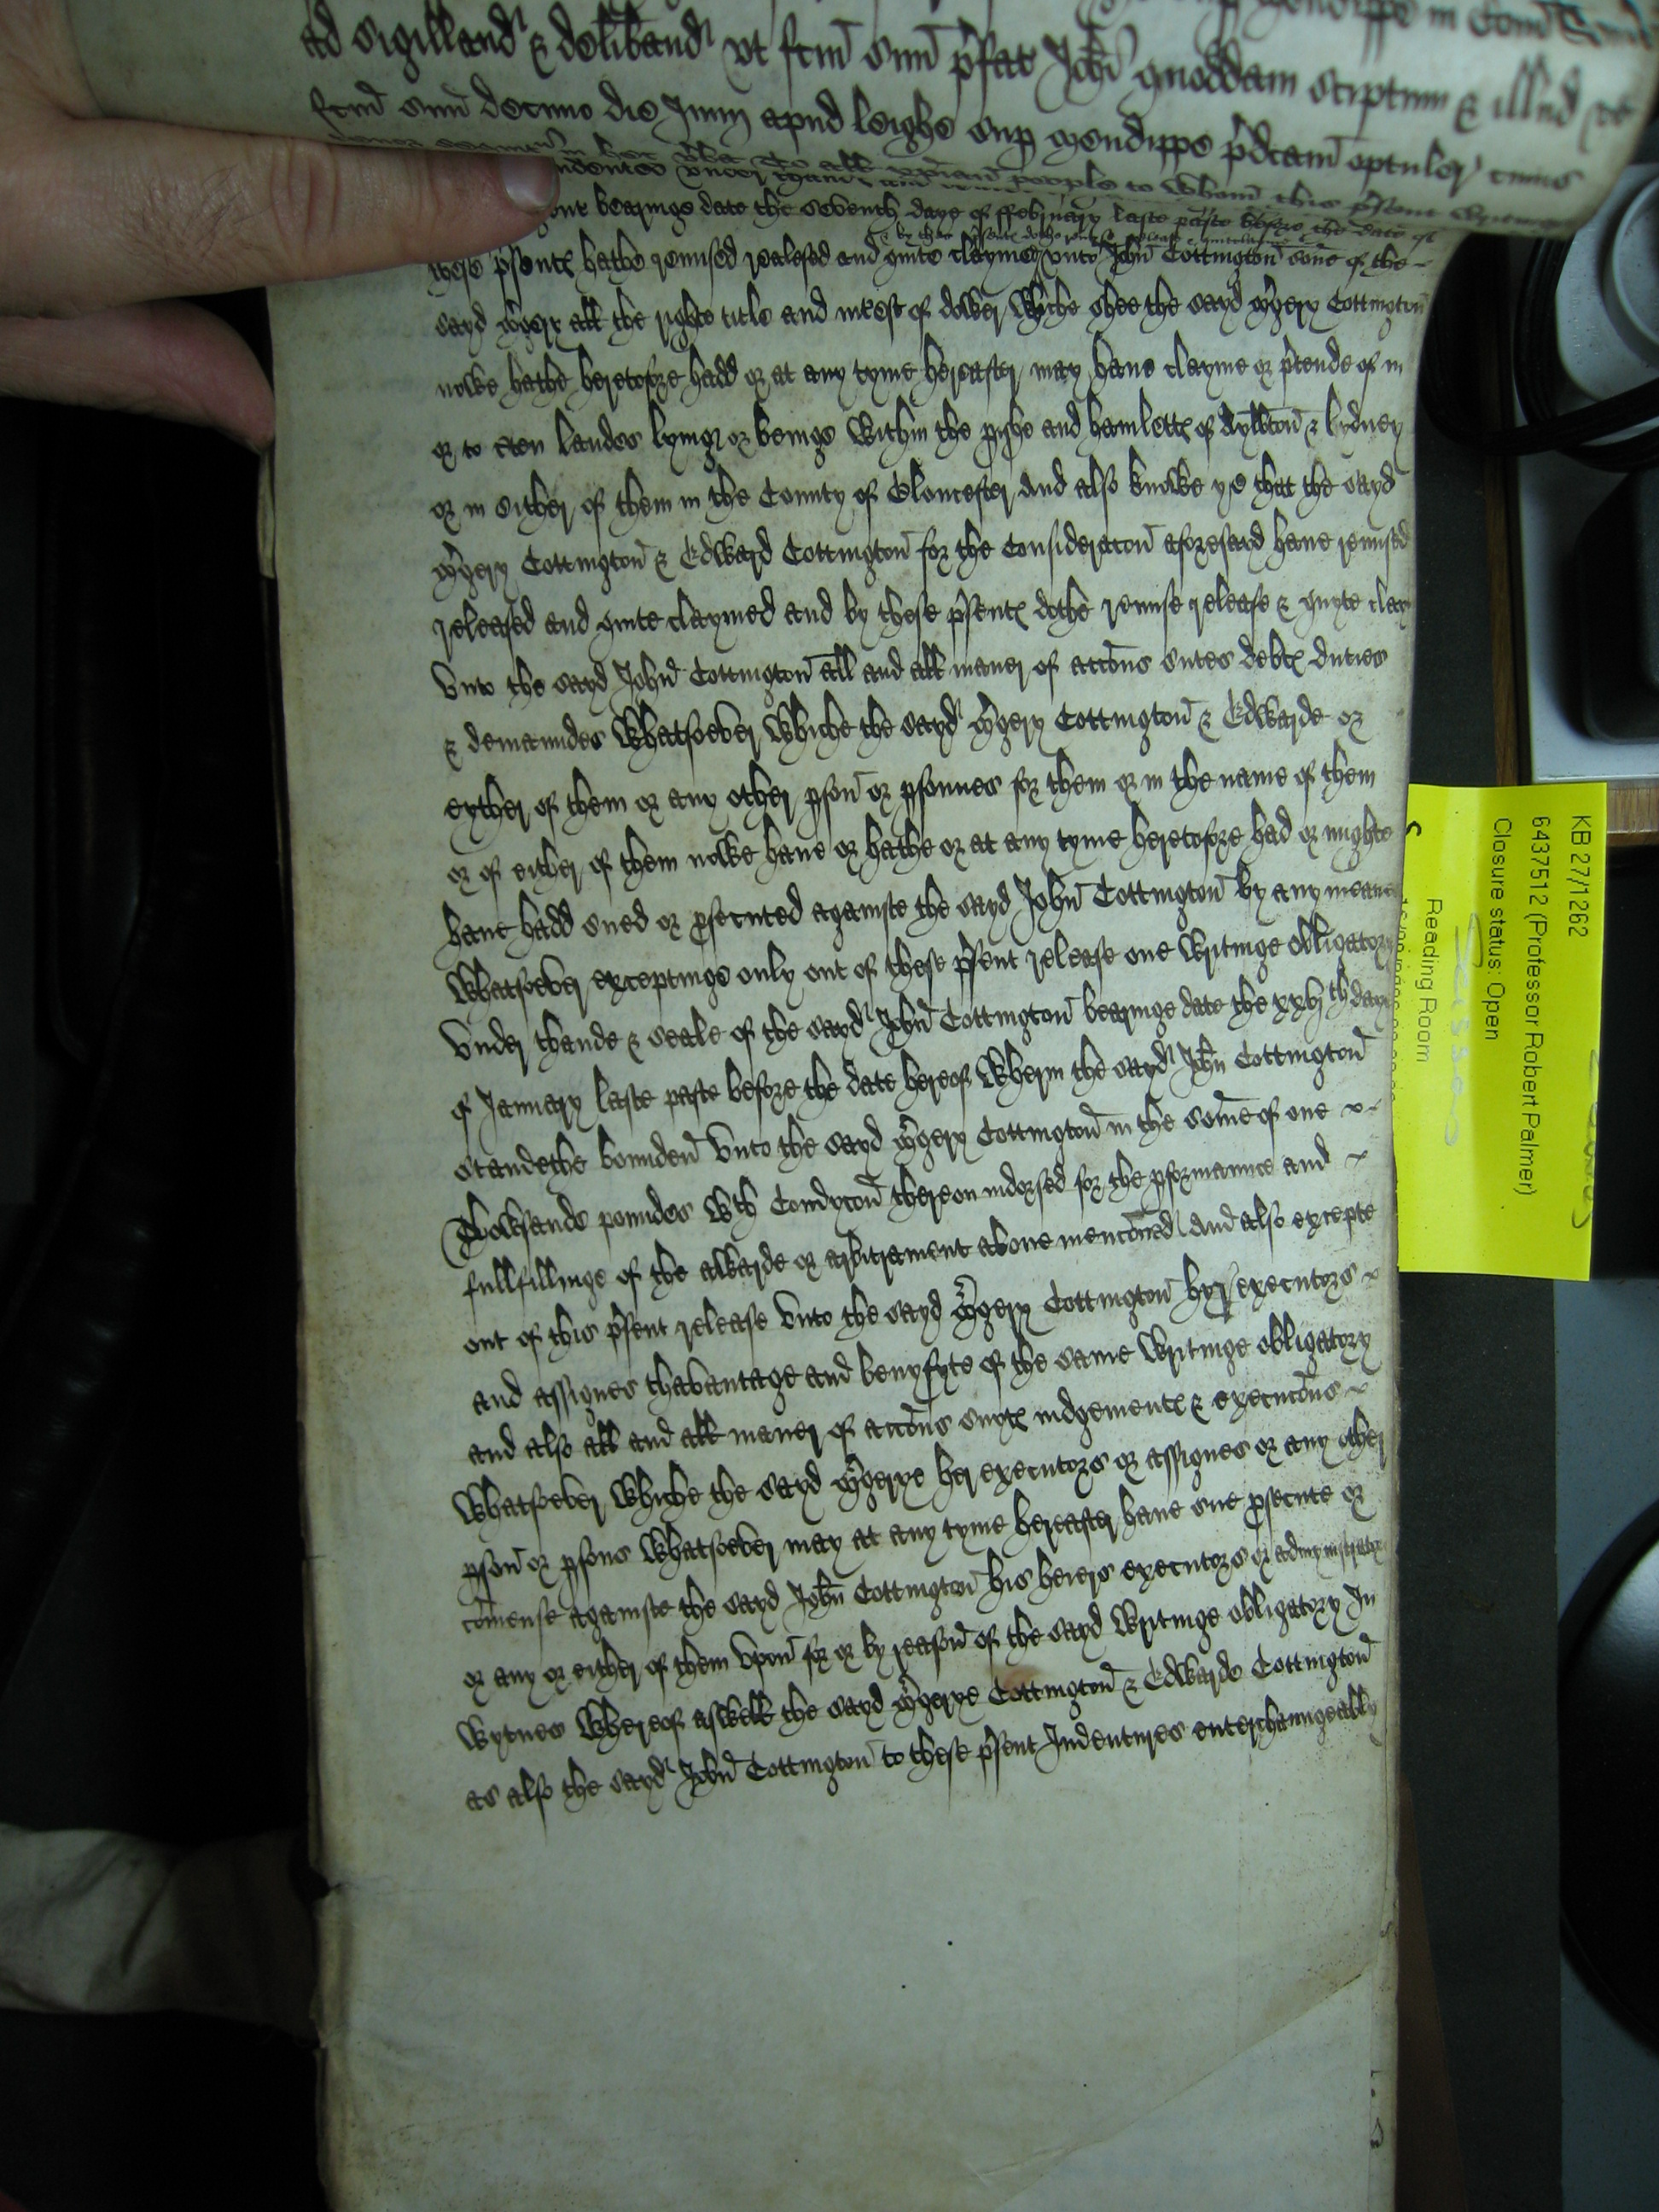 ad sigilland & delib̃and vt fcm̃ suũ p̃fat Joh̃n quoddam scriptum & illud
fcm̃ suũ decimo die Junij apud leighe sup mendippe p̃dcam̃ optuler cuius
to all people to whom this p̃sent
bearinge date the seventh daye of ffebruary laste paste before the date of
these p̃sentꝭ hathe remised realesed and quite claymed vnto John̄ Cottington̄ sone of the
& by these p̃sentꝭ dothe
sayd M̃gery all the righte title and int̃est of dower whiche shee the sayd M̃gery Cottington
nowe hathe heretofore hadd or at any tyme hereafter may haue clayme or p̃tende of in
or to landes lying or beinge within the pishe and hamlettꝭ of Aylb̃ton̄ & lydney
or in either of them in the County of Gloucester And also knowe ye that the sayd
M̃gery Cottington̄ & Edward Cottington̄ for the Consideracon̄ aforesayd haue remised
released and quite claymed and by these p̃sentꝭ dothe remise release & quyte clay
vnto the sayd John̄ Cottington̄ all and all maner of accōns sutes debtꝭ duties
& demaundes whatsoever whiche the sayd M̃gery Cottington̄ & Edwarde or
eyther of them or any other pson̄ or psonnes for them or in the name of them
or of either of them nowe haue or hathe or at any tyme heretofore had or mighte
haue hadd sued or psecuted againste the sayd John̄ Cottington̄ by any meane
whatsoever exceptinge only out of these p̃sent release one writinge obligatory
vnder thande & seale of the sayd John̄ Cottington̄ bearinge date the xxvjth daye
of January laste paste before the date hereof wherin the sayd Joh̃n Cottington̄
standethe bounden̄ vnto the sayd M̃gery Cottington̄ in the som̄e of one
Thowsande poundes wth Condycon̄ thereon indorsed for the pformaunce and
fullfillinge of the awarde or arbitrament aboue menconed And also excepte
out of this p̃sent release vnto the sayd M̃gery Cottington̄ hyr executors
and assignes thadvantage and benyfyte of the same writinge obligatory
and also all and all maner of accōns suytꝭ iudgementꝭ & execucōns
whatsoever whiche the sayd M̃gerye her executors or assignes or any other
pson̄ or psons whatsoever may at any tyme hereafter haue sue psecute or
com̄ense againste the sayd Joh̃n Cottington̄ his heiers executors or admynistrators
or any or either of them vpon̄ for or by reason̄ of the sayd writinge obligatory In
wytnes whereof aswell the sayd M̃gerye Cottington̄ & Edwarde Cottington̄
as also the sayd John̄ Cottington̄ to these p̃sent Indentures enterchaungeably
KB 27/1262
6437512 (Professor Robert Palmer)
Closure status: Open
Reading Room